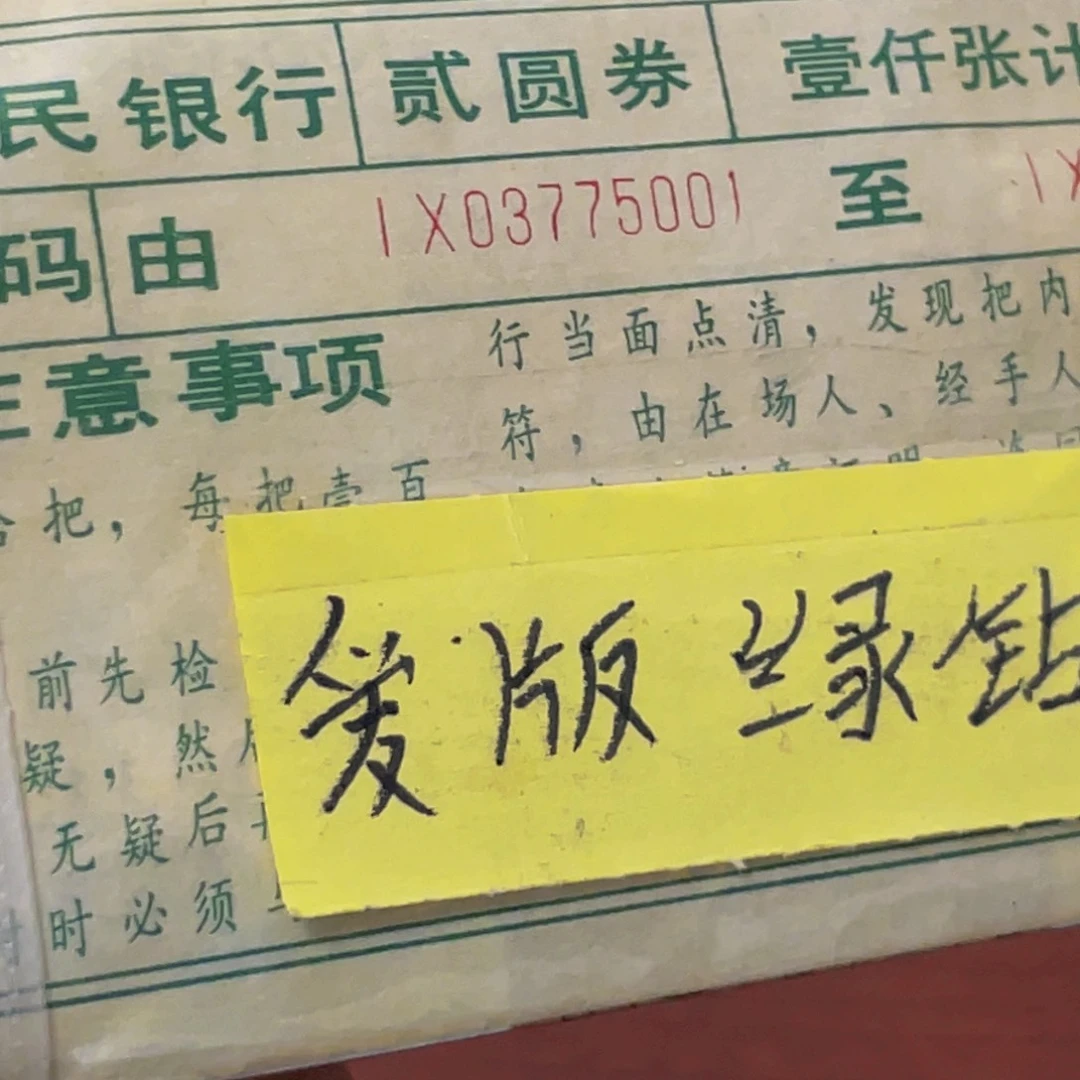 民银行 贰圆券 壹仟张计
码 由 IX03775001 至 IX
注意事项
行当面点清，发现把内
符，由在场人、经手人
合把，每把壹百
前先检
疑，然后
无疑后再
时必须
爱版 绿钻